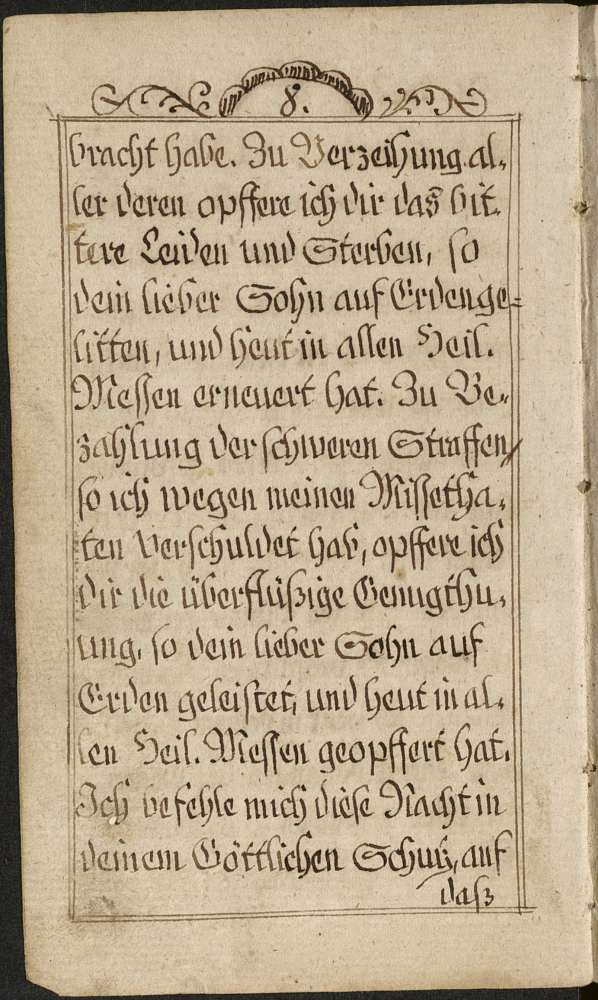 8.
bracht habe. Zu Verzeihung al,
ler deren opffere ich dir das bit,
tere Leiden und Sterben, so
dein lieber Sohn auf Erden ge=
litten, und heut in allen Heil.
Messen erneuert hat. Zu Be,
zahlung der schweren Straffen,
so ich wegen meinen Missetha,
ten verschuldet hab, opffere ich
dir die überflüßige Genugthu,
ung, so dein lieber Sohn auf
Erden geleistet, und heut in al,
len Heil. Messen geopffert hat.
Ich befehle mich diese Nacht in
deinem Göttlichen Schutz, auf
daß